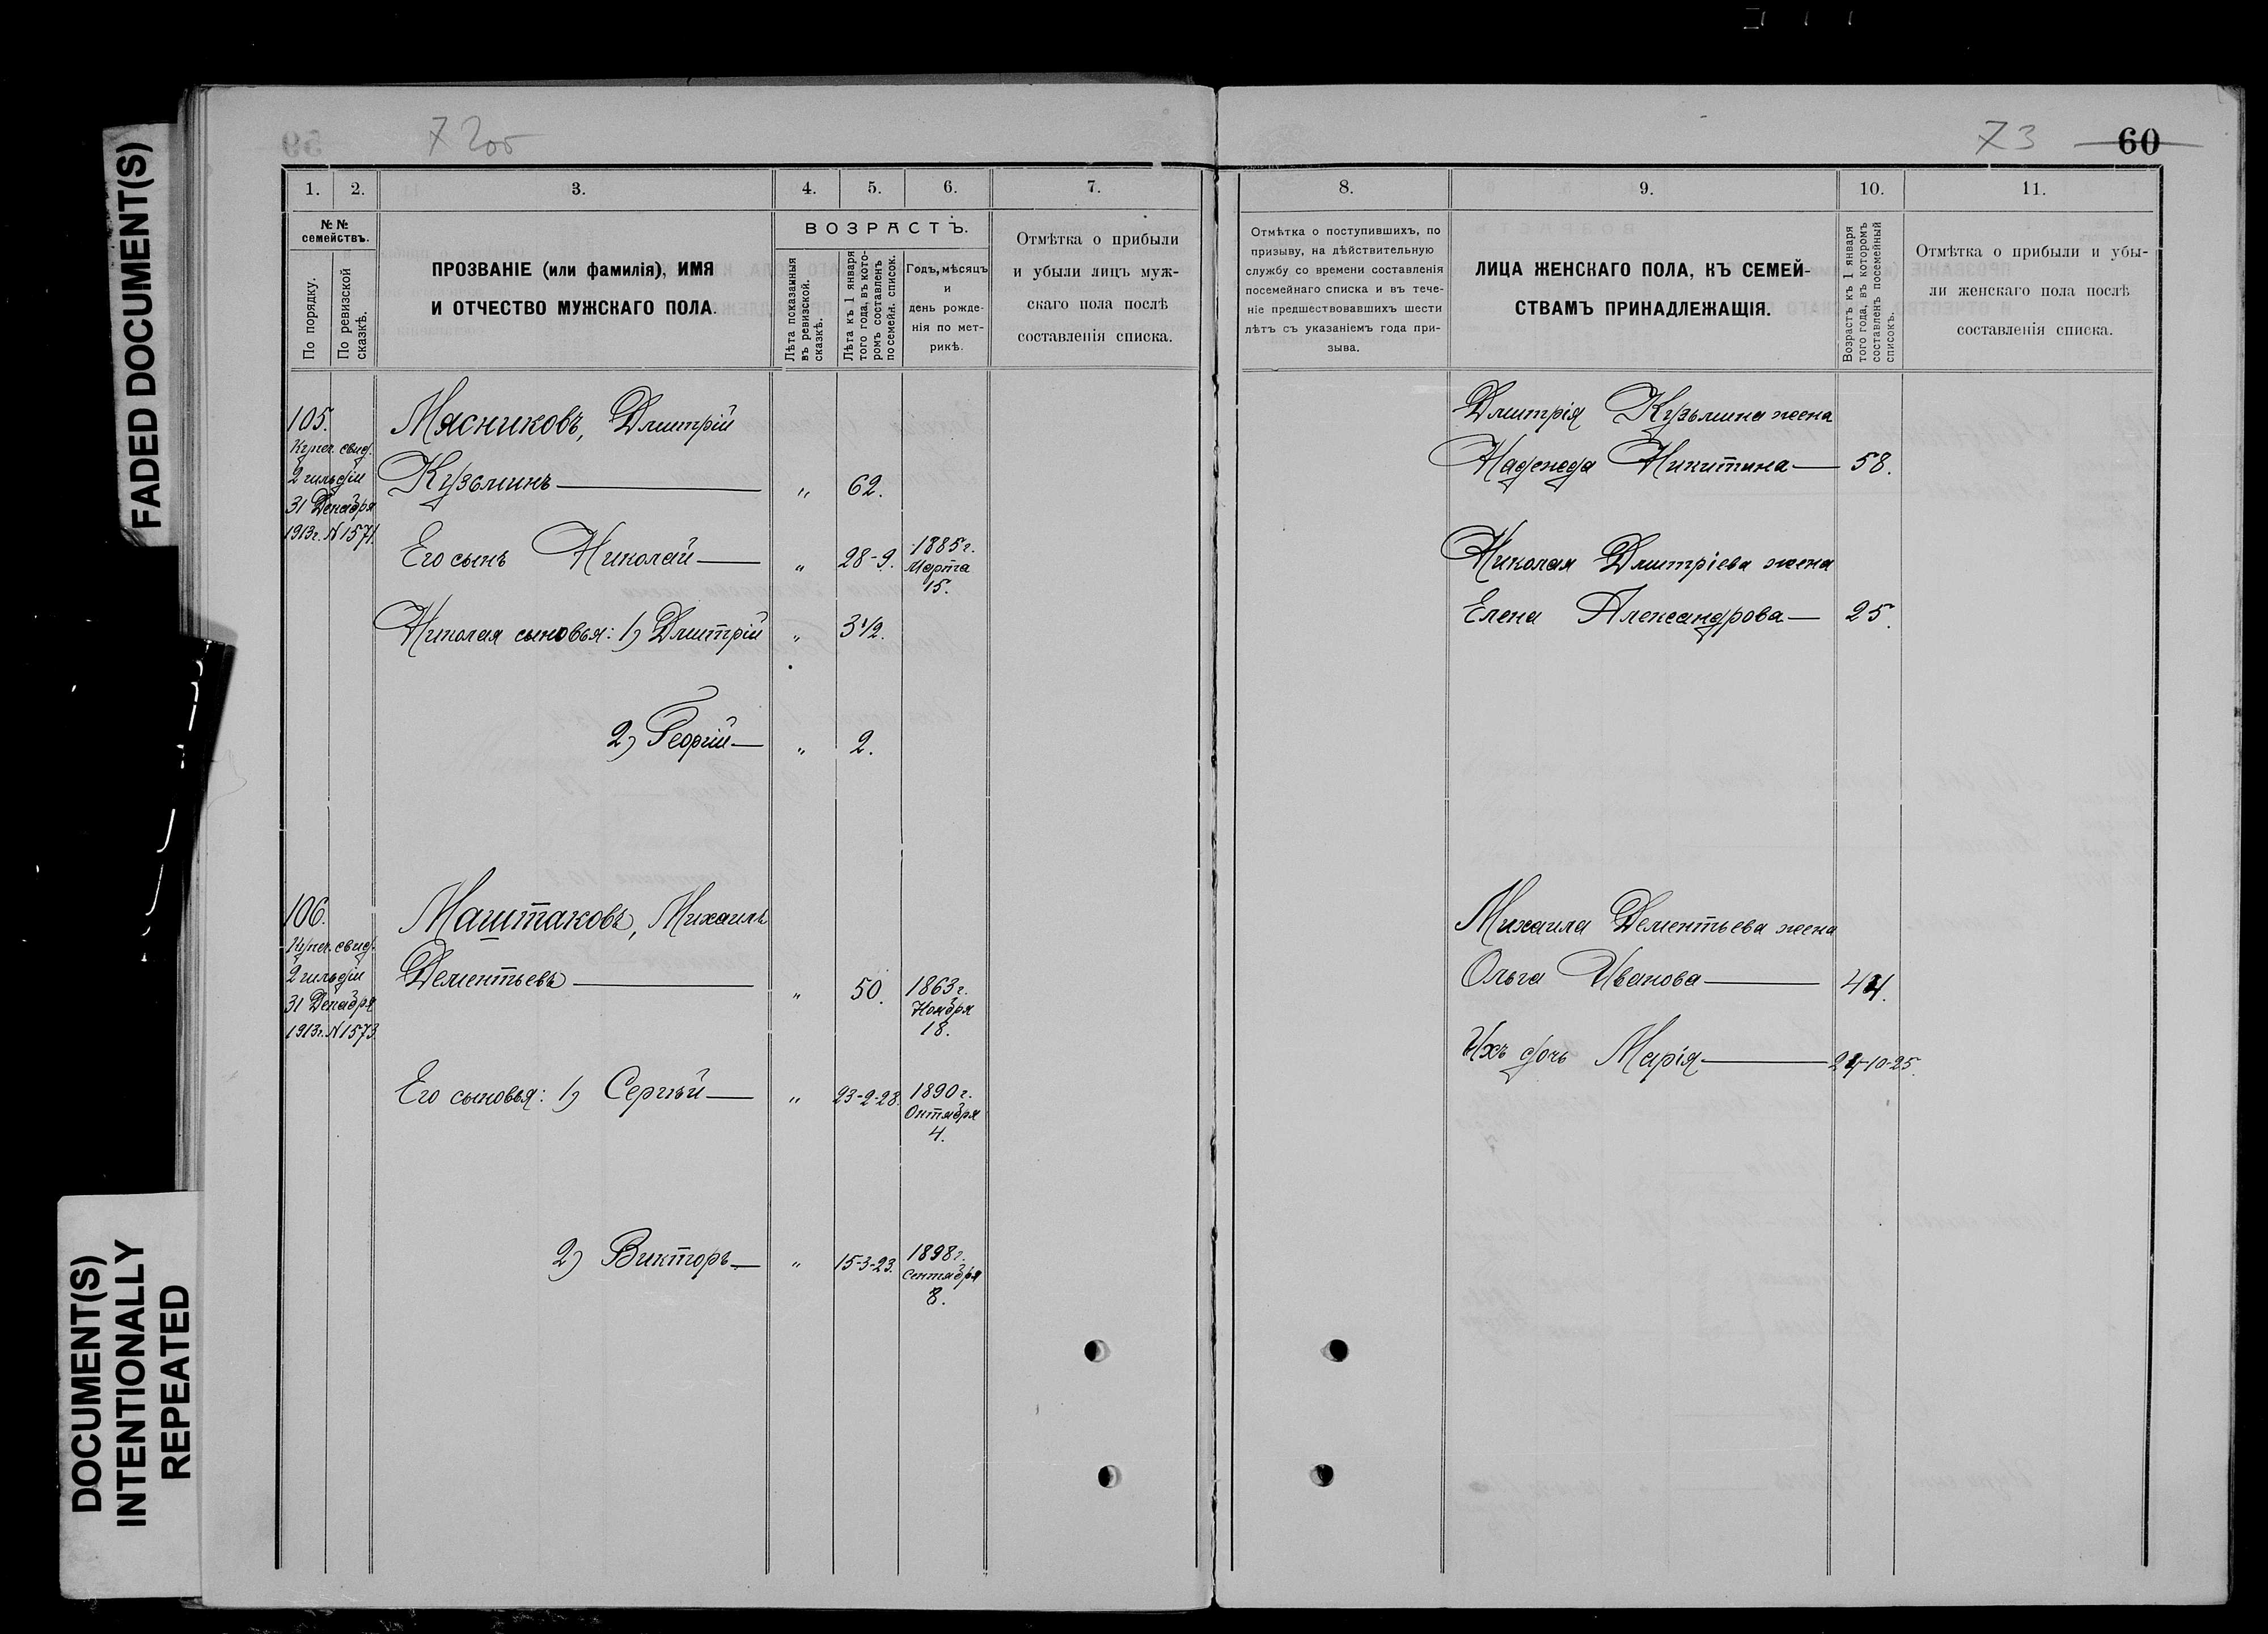 FADED DOCUMENT(S)
DOCUMENT(S)
INTENTIONALLY
REPEATED
73
60
1.
2.
3.
4.
5.
6.
7.
№ №
семействъ.
По порядку.
По ревизской
сказкѣ.
ПРОЗВАНІЕ (или фамилія), ИМЯ
И ОТЧЕСТВО МУЖСКАГО ПОЛА.
ВОЗРАСТЪ.
Лѣта показанныя
въ ревизской.
сказкѣ.
Лѣта къ 1 января
того года, въ кото-
ромъ составленъ
посемейн. список.
Годъ, мѣсяцъ
и
день рожде-
нія по мет-
рикѣ.
Отмѣтка о прибыли
и убыли лицъ муж-
скаго пола послѣ
составленія списка.
105.
Купеч. свид.
2 гильдіи
31 Декабря
1913г. N 1571.
Мясниковъ, Дмитрій
Кузьминъ — " 62.
Его сынъ Николай — " 28-9. 1885г.
Марта
15.
Николая сыновья: 1) Дмитрій " 3 1/2.
2) Георгій — " 2.
106.
Купеч. свид.
2 гильдіи
31 Декабря
1913г. N 1573.
Маштаковъ, Михаилъ
Дементьевъ — " 50. 1863г.
Ноября
18.
Его сыновья: 1) Сергѣй — " 23-2-28. 1890г.
Октября
4.
2) Викторъ — " 15-3-23. 1898г.
Сентября
8.
8.
9.
10.
11.
Отмѣтка о поступившихъ, по
призыву, на дѣйствительную
службу со времени составленія
посемейнаго списка и въ тече-
ніе предшествовавшихъ шести
лѣтъ съ указаніемъ года при-
зыва.
ЛИЦА ЖЕНСКАГО ПОЛА, КЪ СЕМЕЙ-
СТВАМЪ ПРИНАДЛЕЖАЩІЯ.
Возрастъ къ 1 января
того года, въ которомъ
составленъ посемейный
списокъ.
Отмѣтка о прибыли и убы-
ли женскаго пола послѣ
составленія списка.
Дмитрія Кузьмина жена
Надежда Никитина — 58.
Николая Дмитріева жена
Елена Александрова — 25.
Михаила Дементьева жена
Ольга Иванова — 44.
Ихъ дочь Марія —